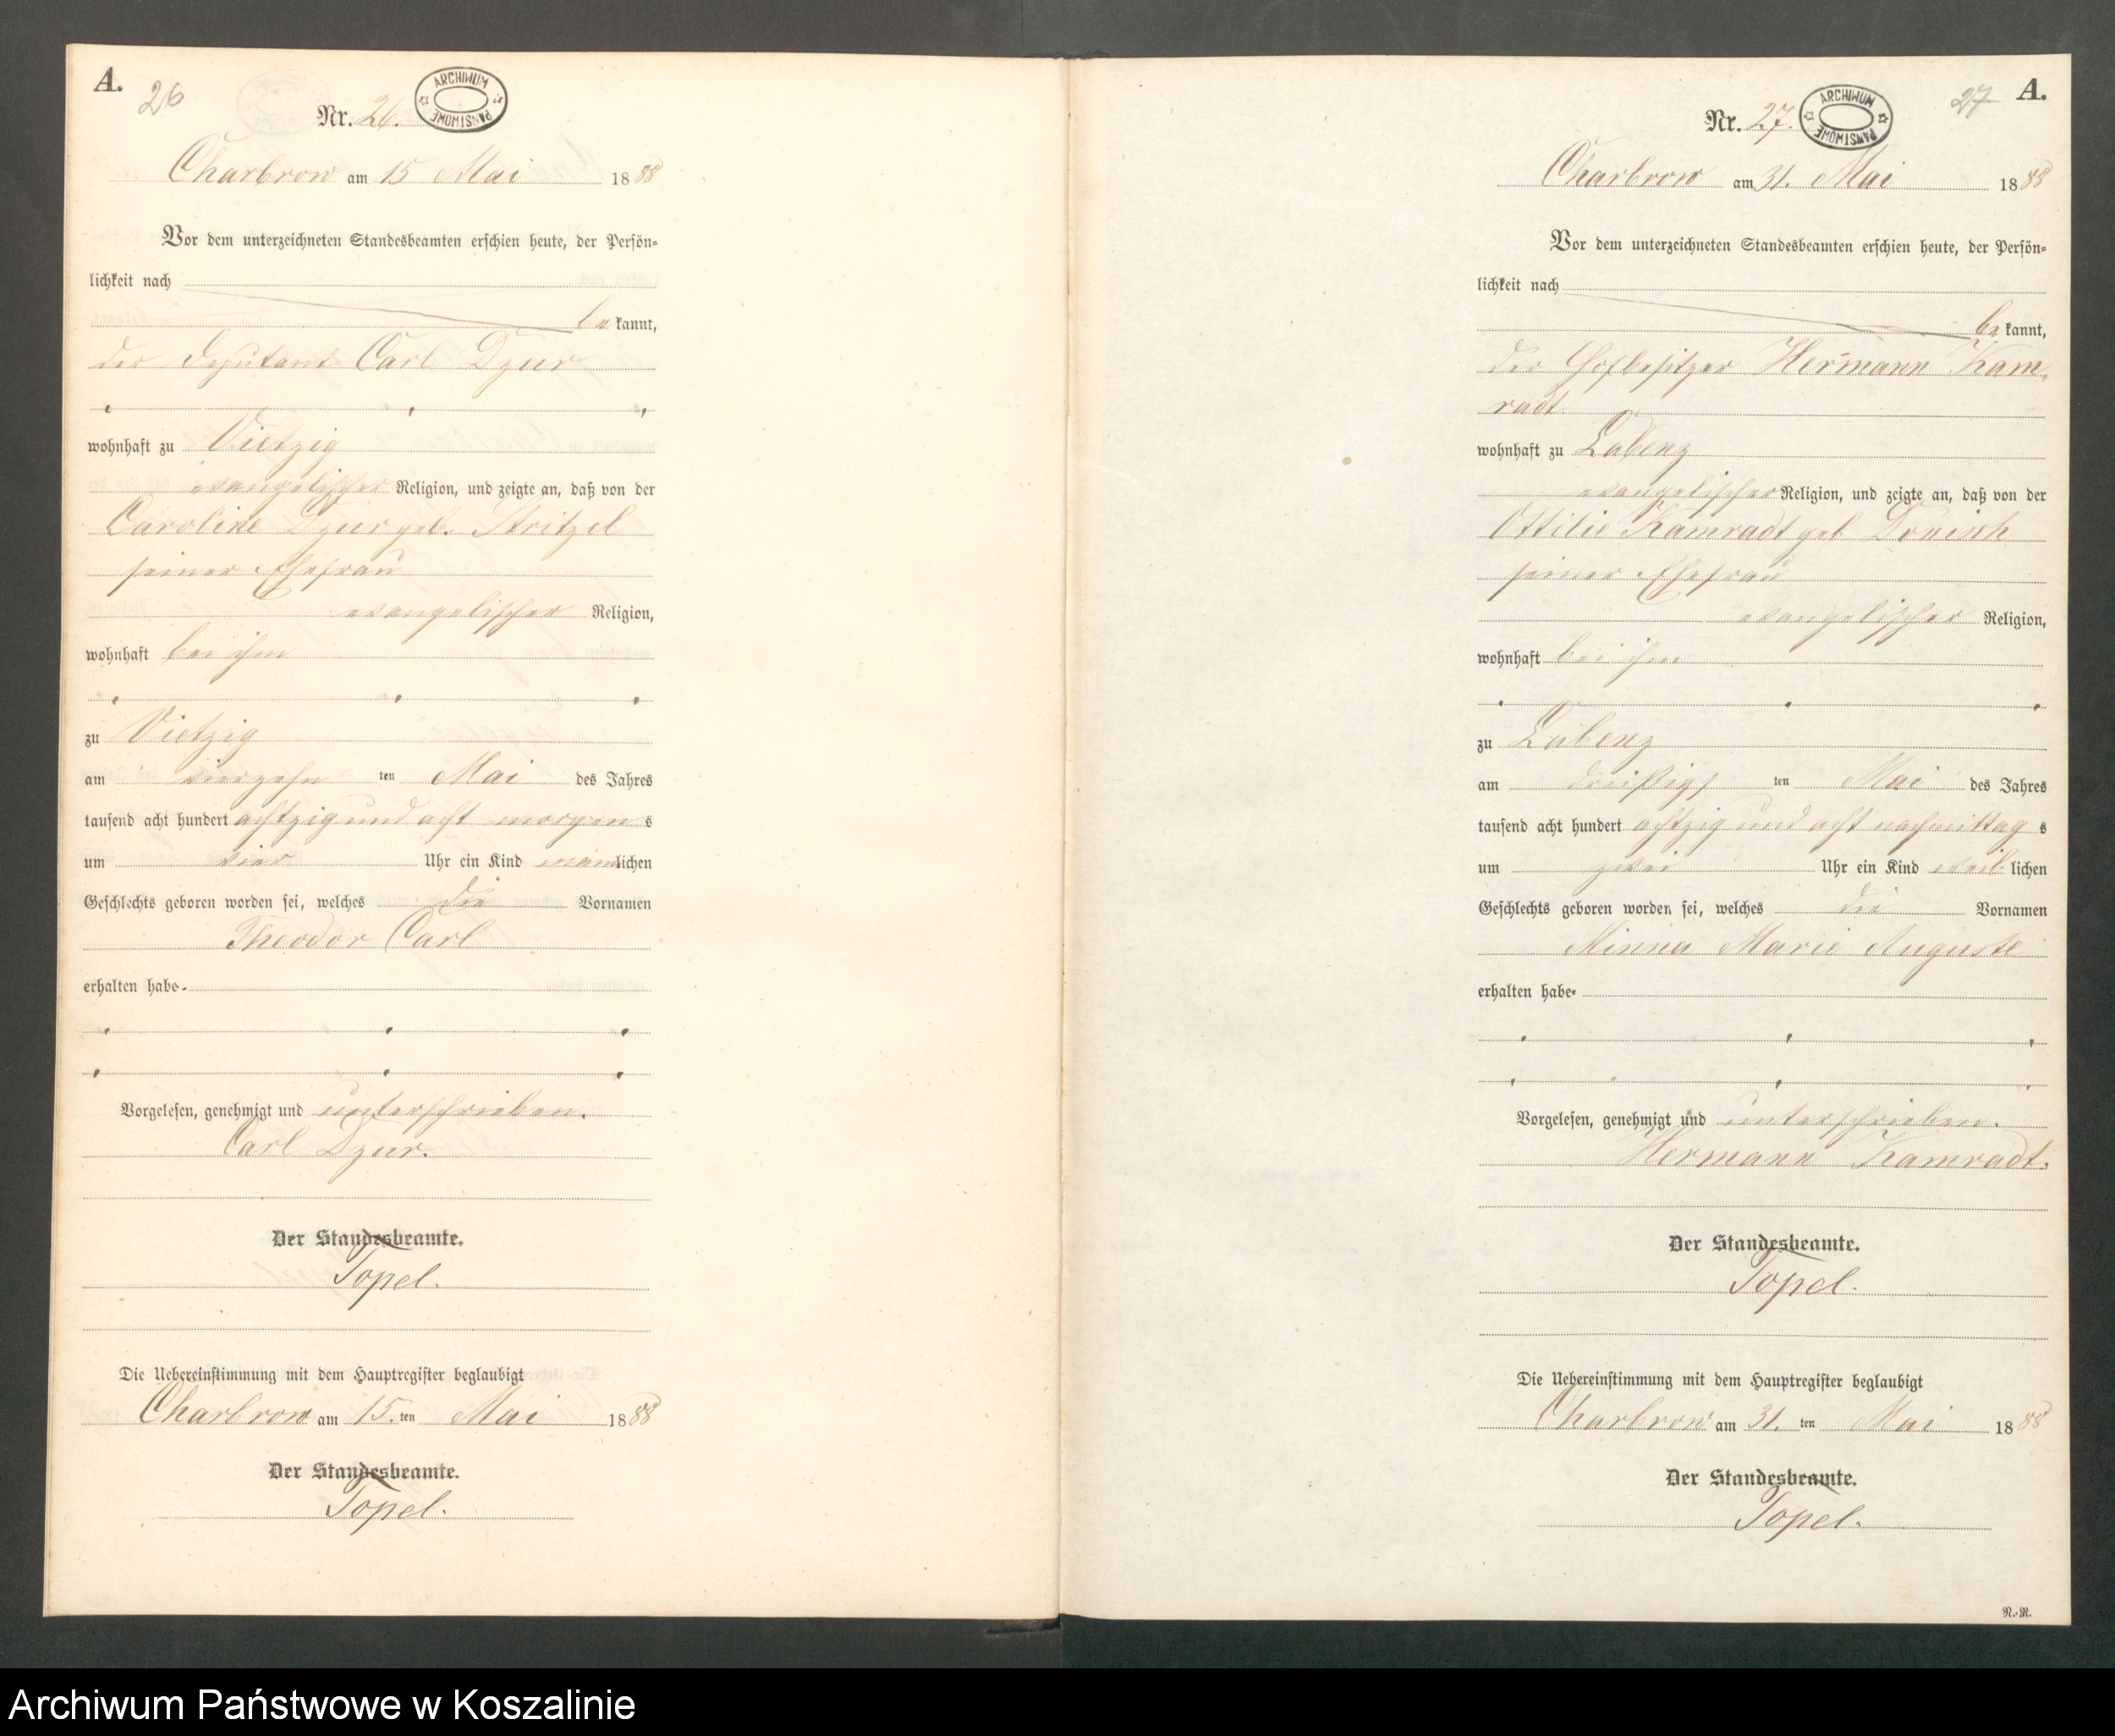 A.
26
Nr. 26.
ARCHIWUM PAŃSTWOWE
Charbrow am 15 Mai 1888
Vor dem unterzeichneten Standesbeamten erschien heute, der Persön=
lichkeit nach
be kannt,
der Deputant Carl Dzur
wohnhaft zu Vietzig
evangelischer Religion, und zeigte an, daß von der
Caroline Dzur geb. Stritzel
seiner Ehefrau
evangelischer Religion,
wohnhaft bei ihm
zu Vietzig
am vierzehn ten Mai des Jahres
tausend acht hundert achtzig und acht morgen s
um vier Uhr ein Kind männlichen
Geschlechts geboren worden sei, welches die Vornamen
Theodor Carl
erhalten habe.
Vorgelesen, genehmigt und unterschrieben.
Carl Dzur.
Der Standesbeamte.
Topel.
Die Uebereinstimmung mit dem Hauptregister beglaubigt
Charbrow am 15. ten Mai 1888
Der Standesbeamte.
Topel.
27
A.
Nr. 27.
ARCHIWUM PAŃSTWOWE
Charbrow am 31. Mai 1888
Vor dem unterzeichneten Standesbeamten erschien heute, der Persön=
lichkeit nach
be kannt,
der Hofbesitzer Hermann Kam-
radt
wohnhaft zu Labenz
evangelischer Religion, und zeigte an, daß von der
Ottilie Kamradt geb
seiner Ehefrau
evangelischer Religion,
wohnhaft bei ihm
zu Labenz
am dreißig ten Mai des Jahres
tausend acht hundert achtzig und acht nachmittag s
um zwei Uhr ein Kind weib lichen
Geschlechts geboren worden sei, welches die Vornamen
Minna Marie Auguste
erhalten habe.
Vorgelesen, genehmigt und unterschrieben.
Hermann Kamradt.
Der Standesbeamte.
Topel.
Die Uebereinstimmung mit dem Hauptregister beglaubigt
Charbrow am 31. ten Mai 1888
Der Standesbeamte.
Topel.
N.-N.
Archiwum Państwowe w Koszalinie